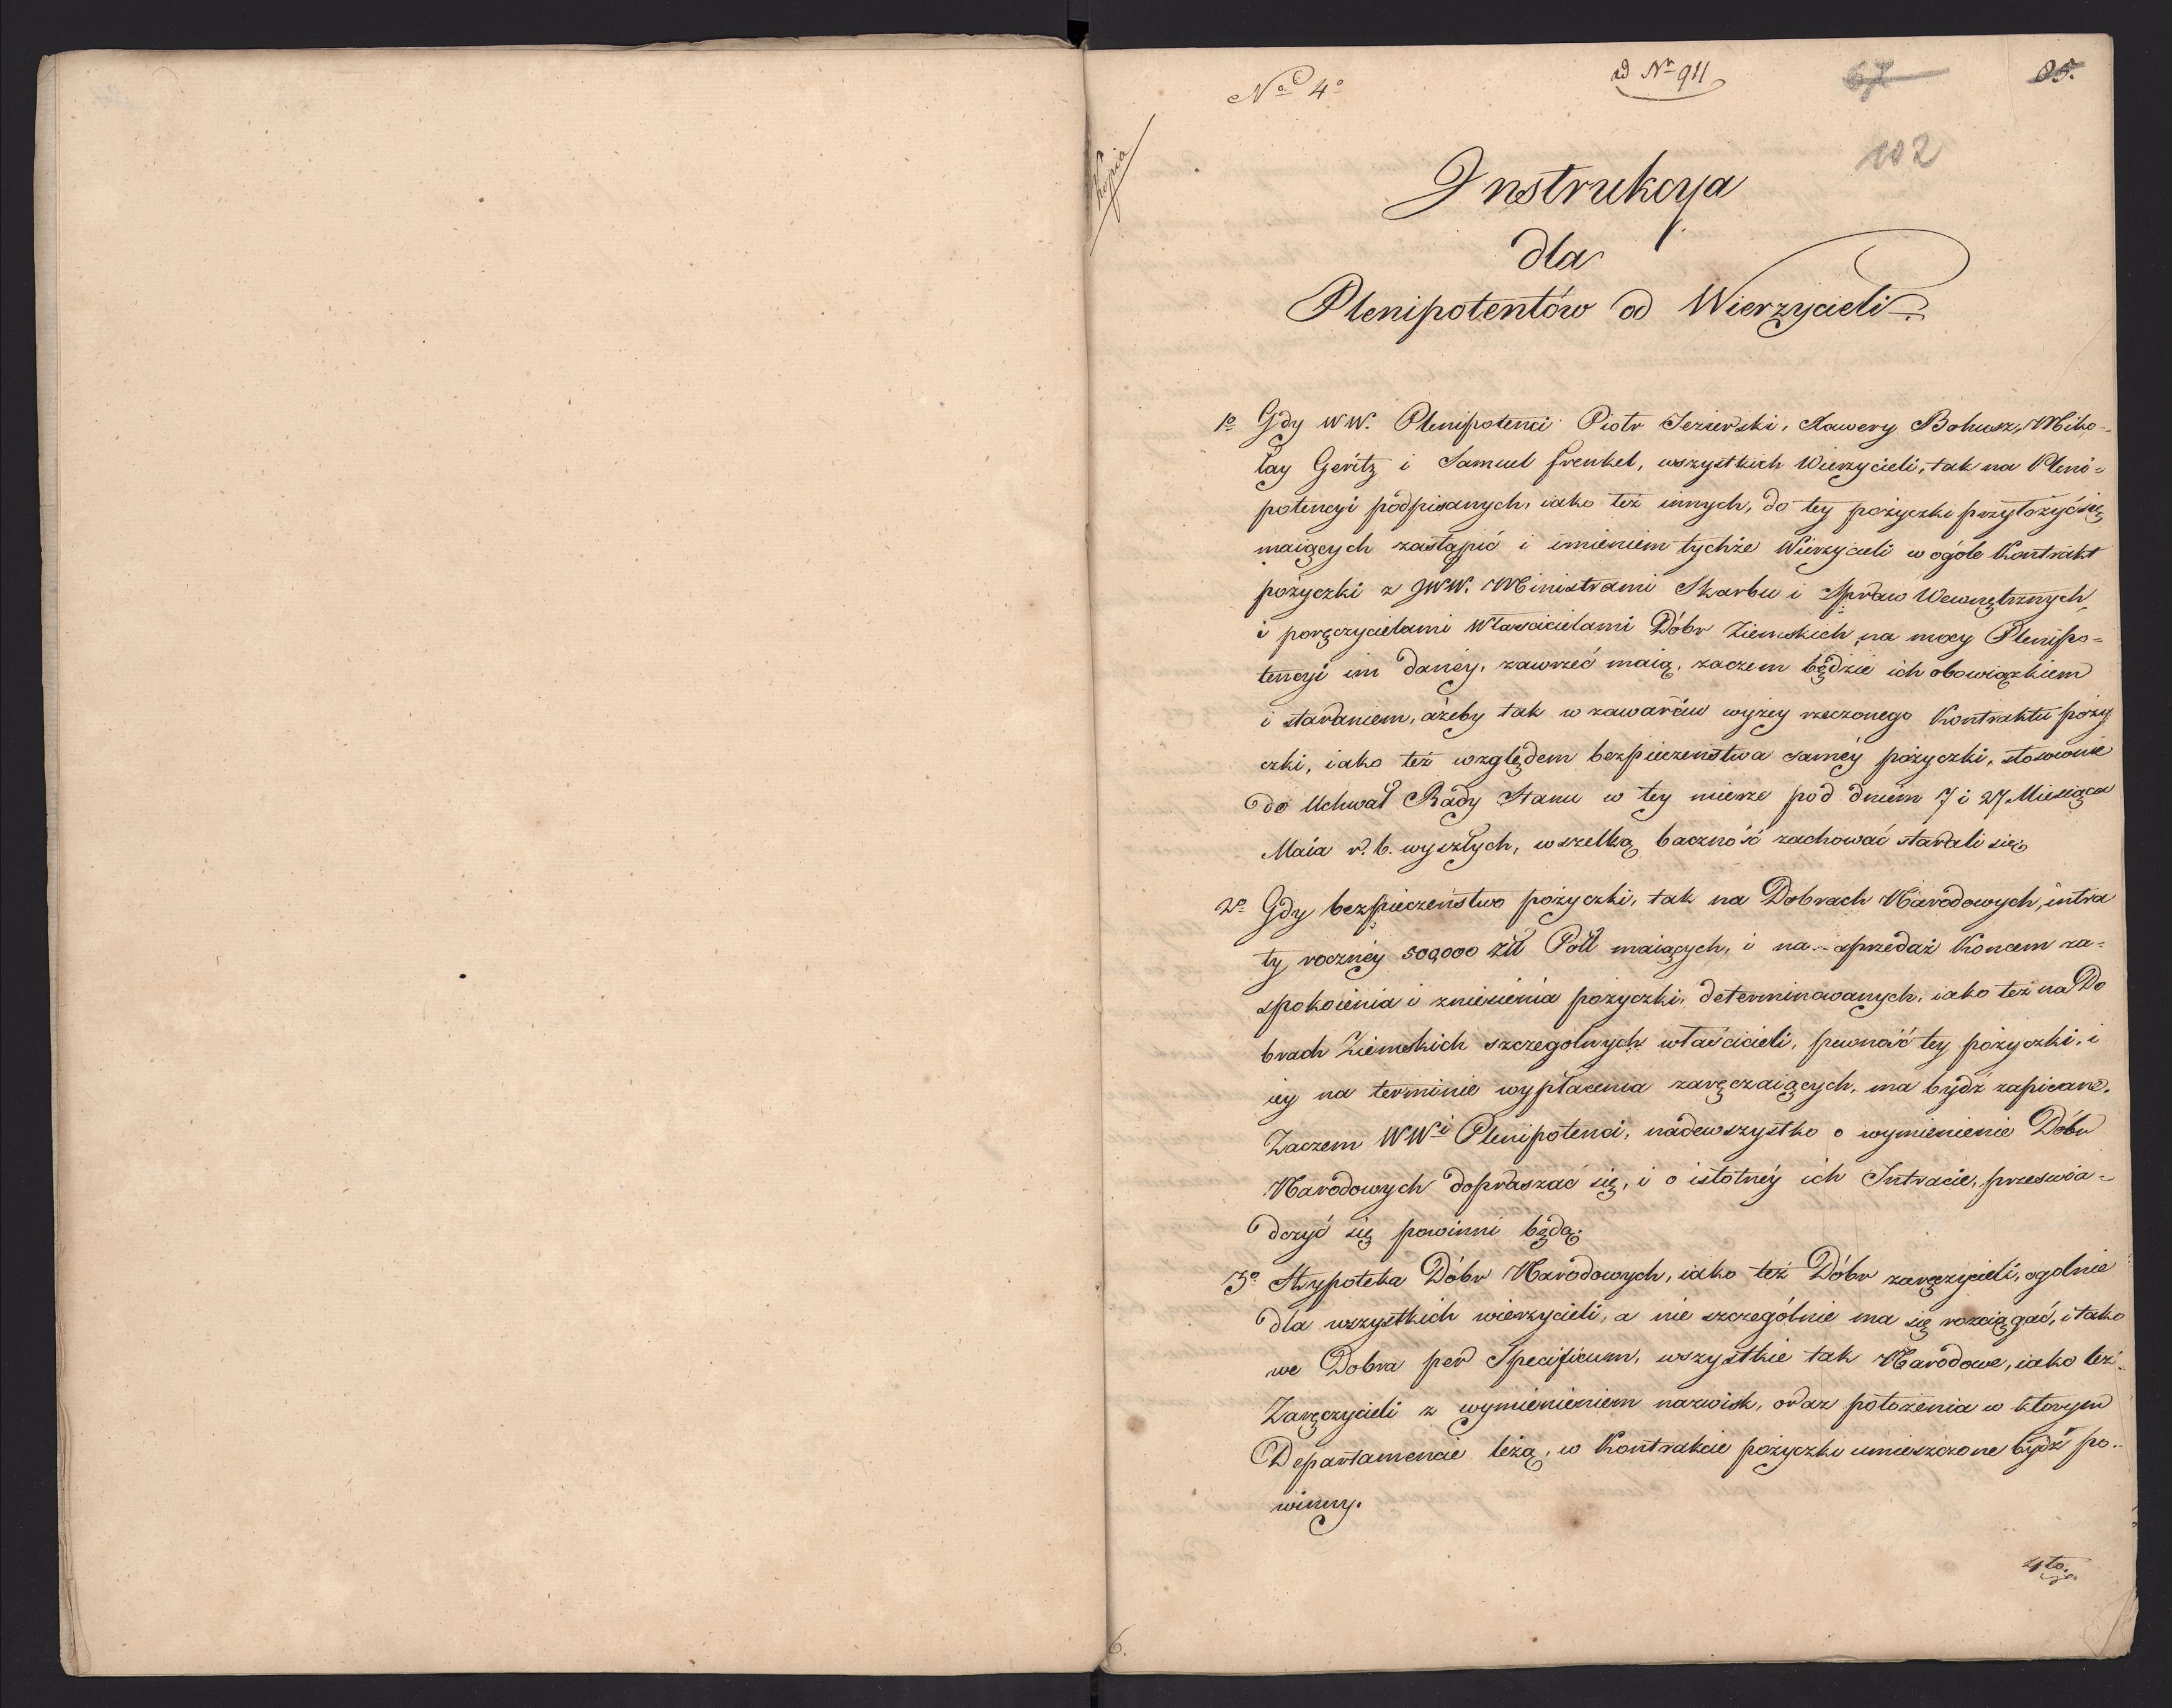 Nº 4º
ad Nr 911
67
85.
102
Kopia
Instrukcya
dla
Plenipotentów od Wierzycieli
1º Gdy WW. Plenipotenci Piotr Jezierski, Xawery Bohusz, Miko-
łay Geritz i Samuel Frenkel, wszystkich Wierzycieli, tak na Pleni-
potencyi podpisanych, iako też innych, do tey pożyczki przyłożyć się
maiących zastąpić i imieniem tychże Wierzycieli w ogóle Kontrakt
pożyczki z JWW. Ministrami Skarbu i Spraw Wewnętrznych,
i poręczycielami Właścicielami Dóbr Ziemskich na mocy Plenipo-
tencyi im danéy, zawrzeć maią, zaczem będzie ich obowiązkiem
i staraniem, ażeby tak w zawarciu wyżey rzeczonego Kontraktu poży
czki, iako też względem bezpieczeństwa saméy pożyczki, stosownie
do Uchwał Rady Stanu w tey mierze pod dniem 7 i 27 Miesiąca
Maia r. b. wyszłych, wszelką baczność zachować starali się,
2º Gdy bezpieczeństwo pożyczki, tak na Dobrach Narodowych, intra
ty rocznéy 500,000 Złł Poll maiących, i na sprzedaż Koncem za-
spokoienia i zniesienia pożyczki, determinowanych, iako też na Do
brach Ziemskich szczegolnych właścicieli, pewność tey pożyczki, i
iey na terminie wypłacenia zaręczaiących, ma bydź zapisane.
Zaczem WWi Plenipotenci, nadewszystko o wymienienie Dóbr
Narodowych dopraszać się, i o istotnéy ich Intracie, przeswia-
dczyć się powinni będą.
3º Hypoteka Dóbr Narodowych, iako też Dóbr zaręczycieli, ogolnie
dla wszystkich wierzycieli, a nie szczególnie ma się rozciągać, i tako
we Dobra per Specificum, wszystkie tak Narodowe, iako też
Zaręczycieli z wymienieniem nazwisk, oraz położenia w ktorym
Departamencie leżą, w Kontrakcie pożyczki umieszczone bydź po-
winny.
4to.
6.